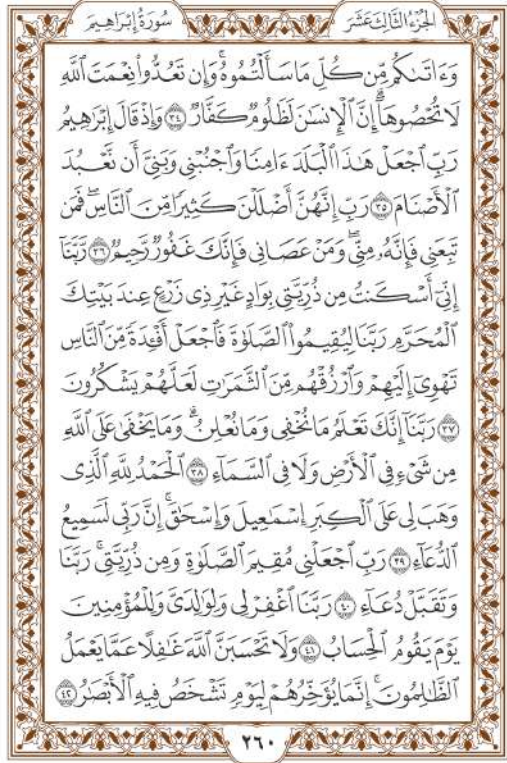 سُورَةُ إِبْرَاهِيم الجُزْءُ الثَّالِثَ عَشَرَ
وَءَاتَىٰكُم مِّن كُلِّ مَا سَأَلْتُمُوهُ ۚ وَإِن تَعُدُّوا۟ نِعْمَتَ ٱللَّهِ
لَا تُحْصُوهَآ ۗ إِنَّ ٱلْإِنسَٰنَ لَظَلُومٌ كَفَّارٌ ۝٣٤ وَإِذْ قَالَ إِبْرَٰهِيمُ
رَبِّ ٱجْعَلْ هَٰذَا ٱلْبَلَدَ ءَامِنًا وَٱجْنُبْنِى وَبَنِىَّ أَن نَّعْبُدَ
ٱلْأَصْنَامَ ۝٣٥ رَبِّ إِنَّهُنَّ أَضْلَلْنَ كَثِيرًا مِّنَ ٱلنَّاسِ ۖ فَمَن
تَبِعَنِى فَإِنَّهُۥ مِنِّى ۖ وَمَنْ عَصَانِى فَإِنَّكَ غَفُورٌ رَّحِيمٌ ۝٣٦ رَّبَّنَآ
إِنِّىٓ أَسْكَنتُ مِن ذُرِّيَّتِى بِوَادٍ غَيْرِ ذِى زَرْعٍ عِندَ بَيْتِكَ
ٱلْمُحَرَّمِ رَبَّنَا لِيُقِيمُوا۟ ٱلصَّلَوٰةَ فَٱجْعَلْ أَفْـِٔدَةً مِّنَ ٱلنَّاسِ
تَهْوِىٓ إِلَيْهِمْ وَٱرْزُقْهُم مِّنَ ٱلثَّمَرَٰتِ لَعَلَّهُمْ يَشْكُرُونَ
۝٣٧ رَبَّنَآ إِنَّكَ تَعْلَمُ مَا نُخْفِى وَمَا نُعْلِنُ ۗ وَمَا يَخْفَىٰ عَلَى ٱللَّهِ
مِن شَىْءٍ فِى ٱلْأَرْضِ وَلَا فِى ٱلسَّمَآءِ ۝٣٨ ٱلْحَمْدُ لِلَّهِ ٱلَّذِى
وَهَبَ لِى عَلَى ٱلْكِبَرِ إِسْمَٰعِيلَ وَإِسْحَٰقَ ۚ إِنَّ رَبِّى لَسَمِيعُ
ٱلدُّعَآءِ ۝٣٩ رَبِّ ٱجْعَلْنِى مُقِيمَ ٱلصَّلَوٰةِ وَمِن ذُرِّيَّتِى ۚ رَبَّنَا
وَتَقَبَّلْ دُعَآءِ ۝٤٠ رَبَّنَا ٱغْفِرْ لِى وَلِوَٰلِدَىَّ وَلِلْمُؤْمِنِينَ
يَوْمَ يَقُومُ ٱلْحِسَابُ ۝٤١ وَلَا تَحْسَبَنَّ ٱللَّهَ غَٰفِلًا عَمَّا يَعْمَلُ
ٱلظَّٰلِمُونَ ۚ إِنَّمَا يُؤَخِّرُهُمْ لِيَوْمٍ تَشْخَصُ فِيهِ ٱلْأَبْصَٰرُ ۝٤٢
٢٦٠